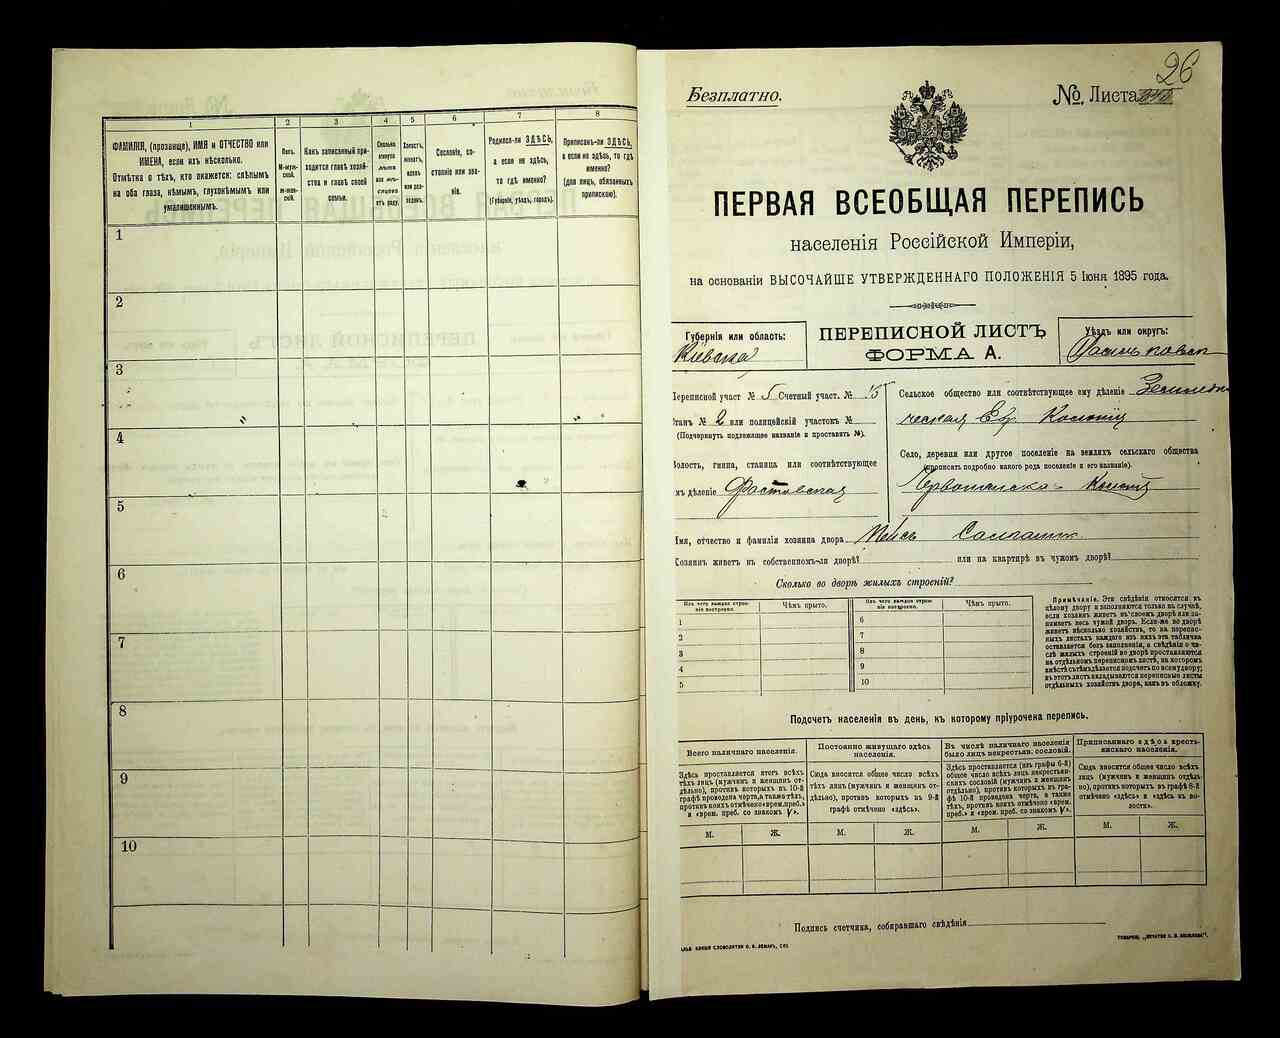 1 2 3 4 5 6 7 8
ФАМИЛІЯ, (прозвище), ИМЯ и ОТЧЕСТВО или
ИМЕНА, если ихъ нѣсколько.
Отмѣтка о тѣхъ, кто окажется: слѣпымъ
на оба глаза, нѣмымъ, глухонѣмымъ или
умалишеннымъ.
Полъ.
М-муж-
ской.
Ж-жен-
скій.
Какъ записанный при-
ходится главѣ хозяй-
ства и главѣ своей
семьи.
Сколько
минуло
лѣтъ
или мѣ-
сяцевъ
отъ роду.
Холостъ,
женатъ,
вдовъ
или раз-
веденъ.
Сословіе, со-
стояніе или зва-
ніе.
Родился-ли ЗДѢСЬ,
а если не здѣсь,
то гдѣ именно?
(Губернія, уѣздъ, городъ).
Приписанъ-ли ЗДѢСЬ,
а если не здѣсь, то гдѣ
именно?
(для лицъ, обязанныхъ
припискою).
1
2
3
4
5
6
7
8
9
10
26
Безплатно.
№ Листа
ПЕРВАЯ ВСЕОБЩАЯ ПЕРЕПИСЬ
населенія Россійской Имперіи,
на основаніи ВЫСОЧАЙШЕ УТВЕРЖДЕННАГО ПОЛОЖЕНІЯ 5 Іюня 1895 года.
Губернія или область:
Кіевская
ПЕРЕПИСНОЙ ЛИСТЪ
ФОРМА А.
Уѣздъ или округъ:
Переписной участ № 5 Счетный участ. № 15
Станъ № 2 или полицейскій участокъ №
(Подчеркнуть подлежащее названіе и проставить №).
Волость, гмина, станица или соотвѣтствующее
имъ дѣленіе Фастовская
Сельское общество или соотвѣтствующее ему дѣленіе Земледѣль
ческая Евр. Колонія
Село, деревня или другое поселеніе на земляхъ сельскаго общества
(прописать подробно какого рода поселеніе и его названіе).
Червонянская Колонія
Имя, отчество и фамилія хозяина двора
Хозяинъ живетъ въ собственномъ-ли дворѣ? или на квартирѣ въ чужомъ дворѣ?
Сколько во дворѣ жилыхъ строеній?
Изъ чего каждое строе-
ніе построено.
Чѣмъ крыто.
Изъ чего каждое строе-
ніе построено.
Чѣмъ крыто.
1 6
2 7
3 8
4 9
5 10
Примѣчаніе. Эти свѣдѣнія относятся къ
цѣлому двору и заполняются только на случай,
если хозяинъ живетъ въ своемъ дворѣ или за-
нимаетъ весь чужой дворъ. Если-же во дворѣ
живетъ нѣсколько хозяйствъ, то на перепис-
ныхъ листахъ каждаго изъ нихъ эта табличка
оставляется безъ заполненія, а свѣдѣнія о чи-
слѣ жилыхъ строеній во дворѣ проставляются
на отдѣльномъ переписномъ листѣ, на которомъ
вмѣстѣ съ тѣмъ дѣлается подсчетъ по всему двору;
въ этотъ листъ вкладываются переписные листы
отдѣльныхъ хозяйствъ двора, какъ въ обложку.
Подсчетъ населенія въ день, къ которому пріурочена перепись.
Всего наличнаго населенія.
Здѣсь проставляется итогъ всѣхъ
тѣхъ лицъ (мужчинъ и женщинъ от-
дѣльно), противъ которыхъ въ 10-й
графѣ проведена черта, а также тѣхъ,
противъ коихъ отмѣчено «врем. преб.»
и «врем. преб. со знакомъ V».
Постоянно живущаго здѣсь
населенія.
Сюда вносится общее число всѣхъ
тѣхъ лицъ (мужчинъ и женщинъ от-
дѣльно), противъ которыхъ въ 9-й
графѣ отмѣчено «здѣсь».
Въ числѣ наличнаго населенія
было лицъ некрестьян. сословій.
Здѣсь проставляется (изъ графы 6-й)
общее число всѣхъ лицъ некрестьян-
скихъ сословій (мужчинъ и женщинъ
отдѣльно), противъ которыхъ въ гра-
фѣ 10-й проведена черта, а также
тѣхъ, противъ коихъ отмѣчено «врем.
преб.» и «врем. преб. со знакомъ V».
Приписаннаго здѣсь кресть-
янскаго населенія.
Сюда вносится общее число всѣхъ
лицъ (мужчинъ и женщинъ отдѣль-
но), противъ которыхъ въ графѣ 8-й
отмѣчено «здѣсь» и «здѣсь въ во-
лости».
М. Ж. М. Ж. М. Ж. М. Ж.
Подпись счетчика, собиравшаго свѣдѣнія